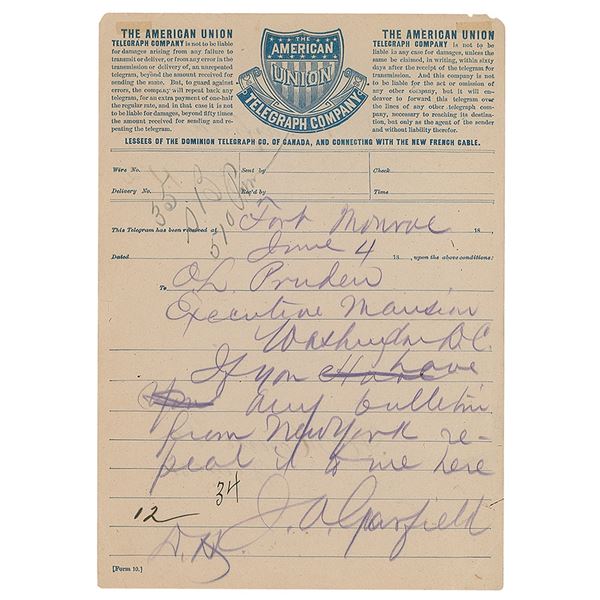 THE AMERICAN UNION
TELEGRAPH COMPANY is not to be liable
for damages arising from any failure to
transmit or deliver, or from any error in the
transmission or delivery of, an unrepeated
telegram, beyond the amount received for
sending the same. But, to guard against
errors, the company will repeat back any
telegram, for an extra payment of one-half
the regular rate, and in that case it is not
to be liable for damages, beyond fifty times
the amount received for sending and re-
peating the telegram.
THE
AMERICAN
UNION
TELEGRAPH COMPANY
THE AMERICAN UNION
TELEGRAPH COMPANY is not to be
liable in any case for damages, unless the
same be claimed, in writing, within sixty
days after the receipt of the telegram for
transmission. And this company is not
to be liable for the act or omission of
any other company, but it will en-
deavor to forward this telegram over
the lines of any other telegraph com-
pany, necessary to reaching its destina-
tion, but only as the agent of the sender
and without liability therefor.
LESSEES OF THE DOMINION TELEGRAPH CO. OF CANADA, AND CONNECTING WITH THE NEW FRENCH CABLE.
Wire No. Sent by Check
Delivery No. Rec'd by Time
35
510
This Telegram has been received at Fort Monroe 18
Dated June 4 18 , upon the above conditions:
To O.L. Pruden
Executive Mansion
Washington D.C.
If you have
any bulletin
from New York re-
peat it to me here
34
12 J. A. Garfield
D.H.
[Form 10.]